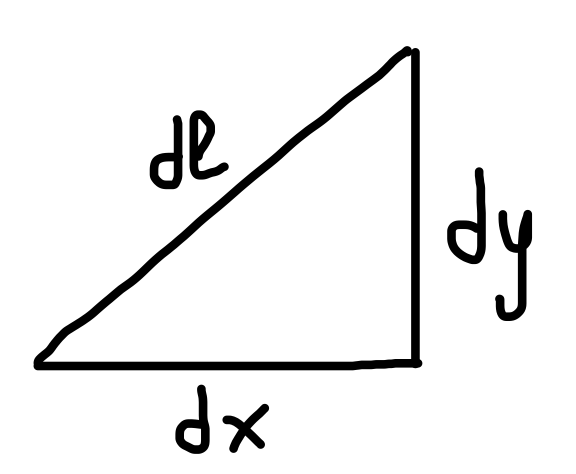 dℓ
dy
dx